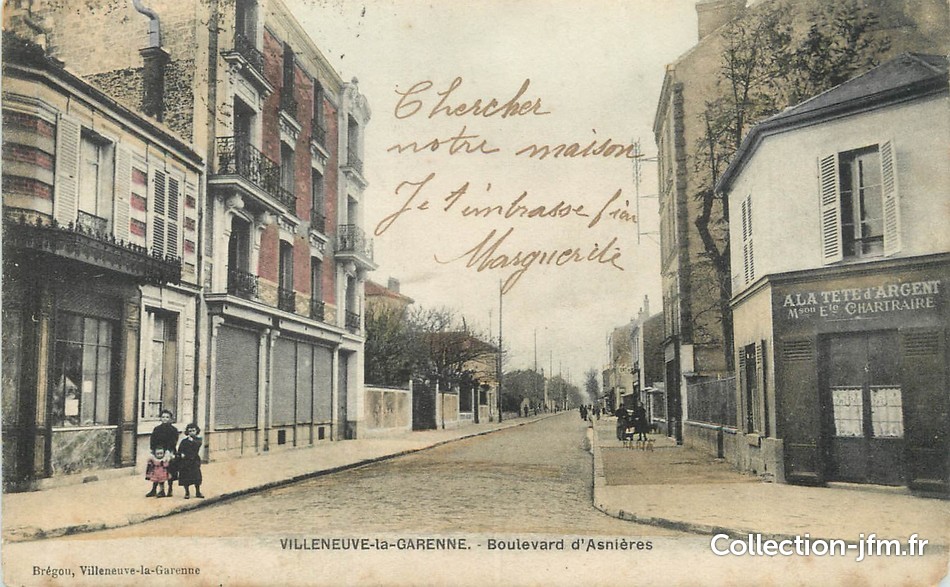 Chercher
notre maison
Je t'imbrasse fin
Marguerite
A LA TETE d'ARGENT
Mson Ete CHARTRAIRE
VILLENEUVE-la-GARENNE. - Boulevard d'Asnières
Brégou, Villeneuve-la-Garenne
www.Collection-jfm.fr